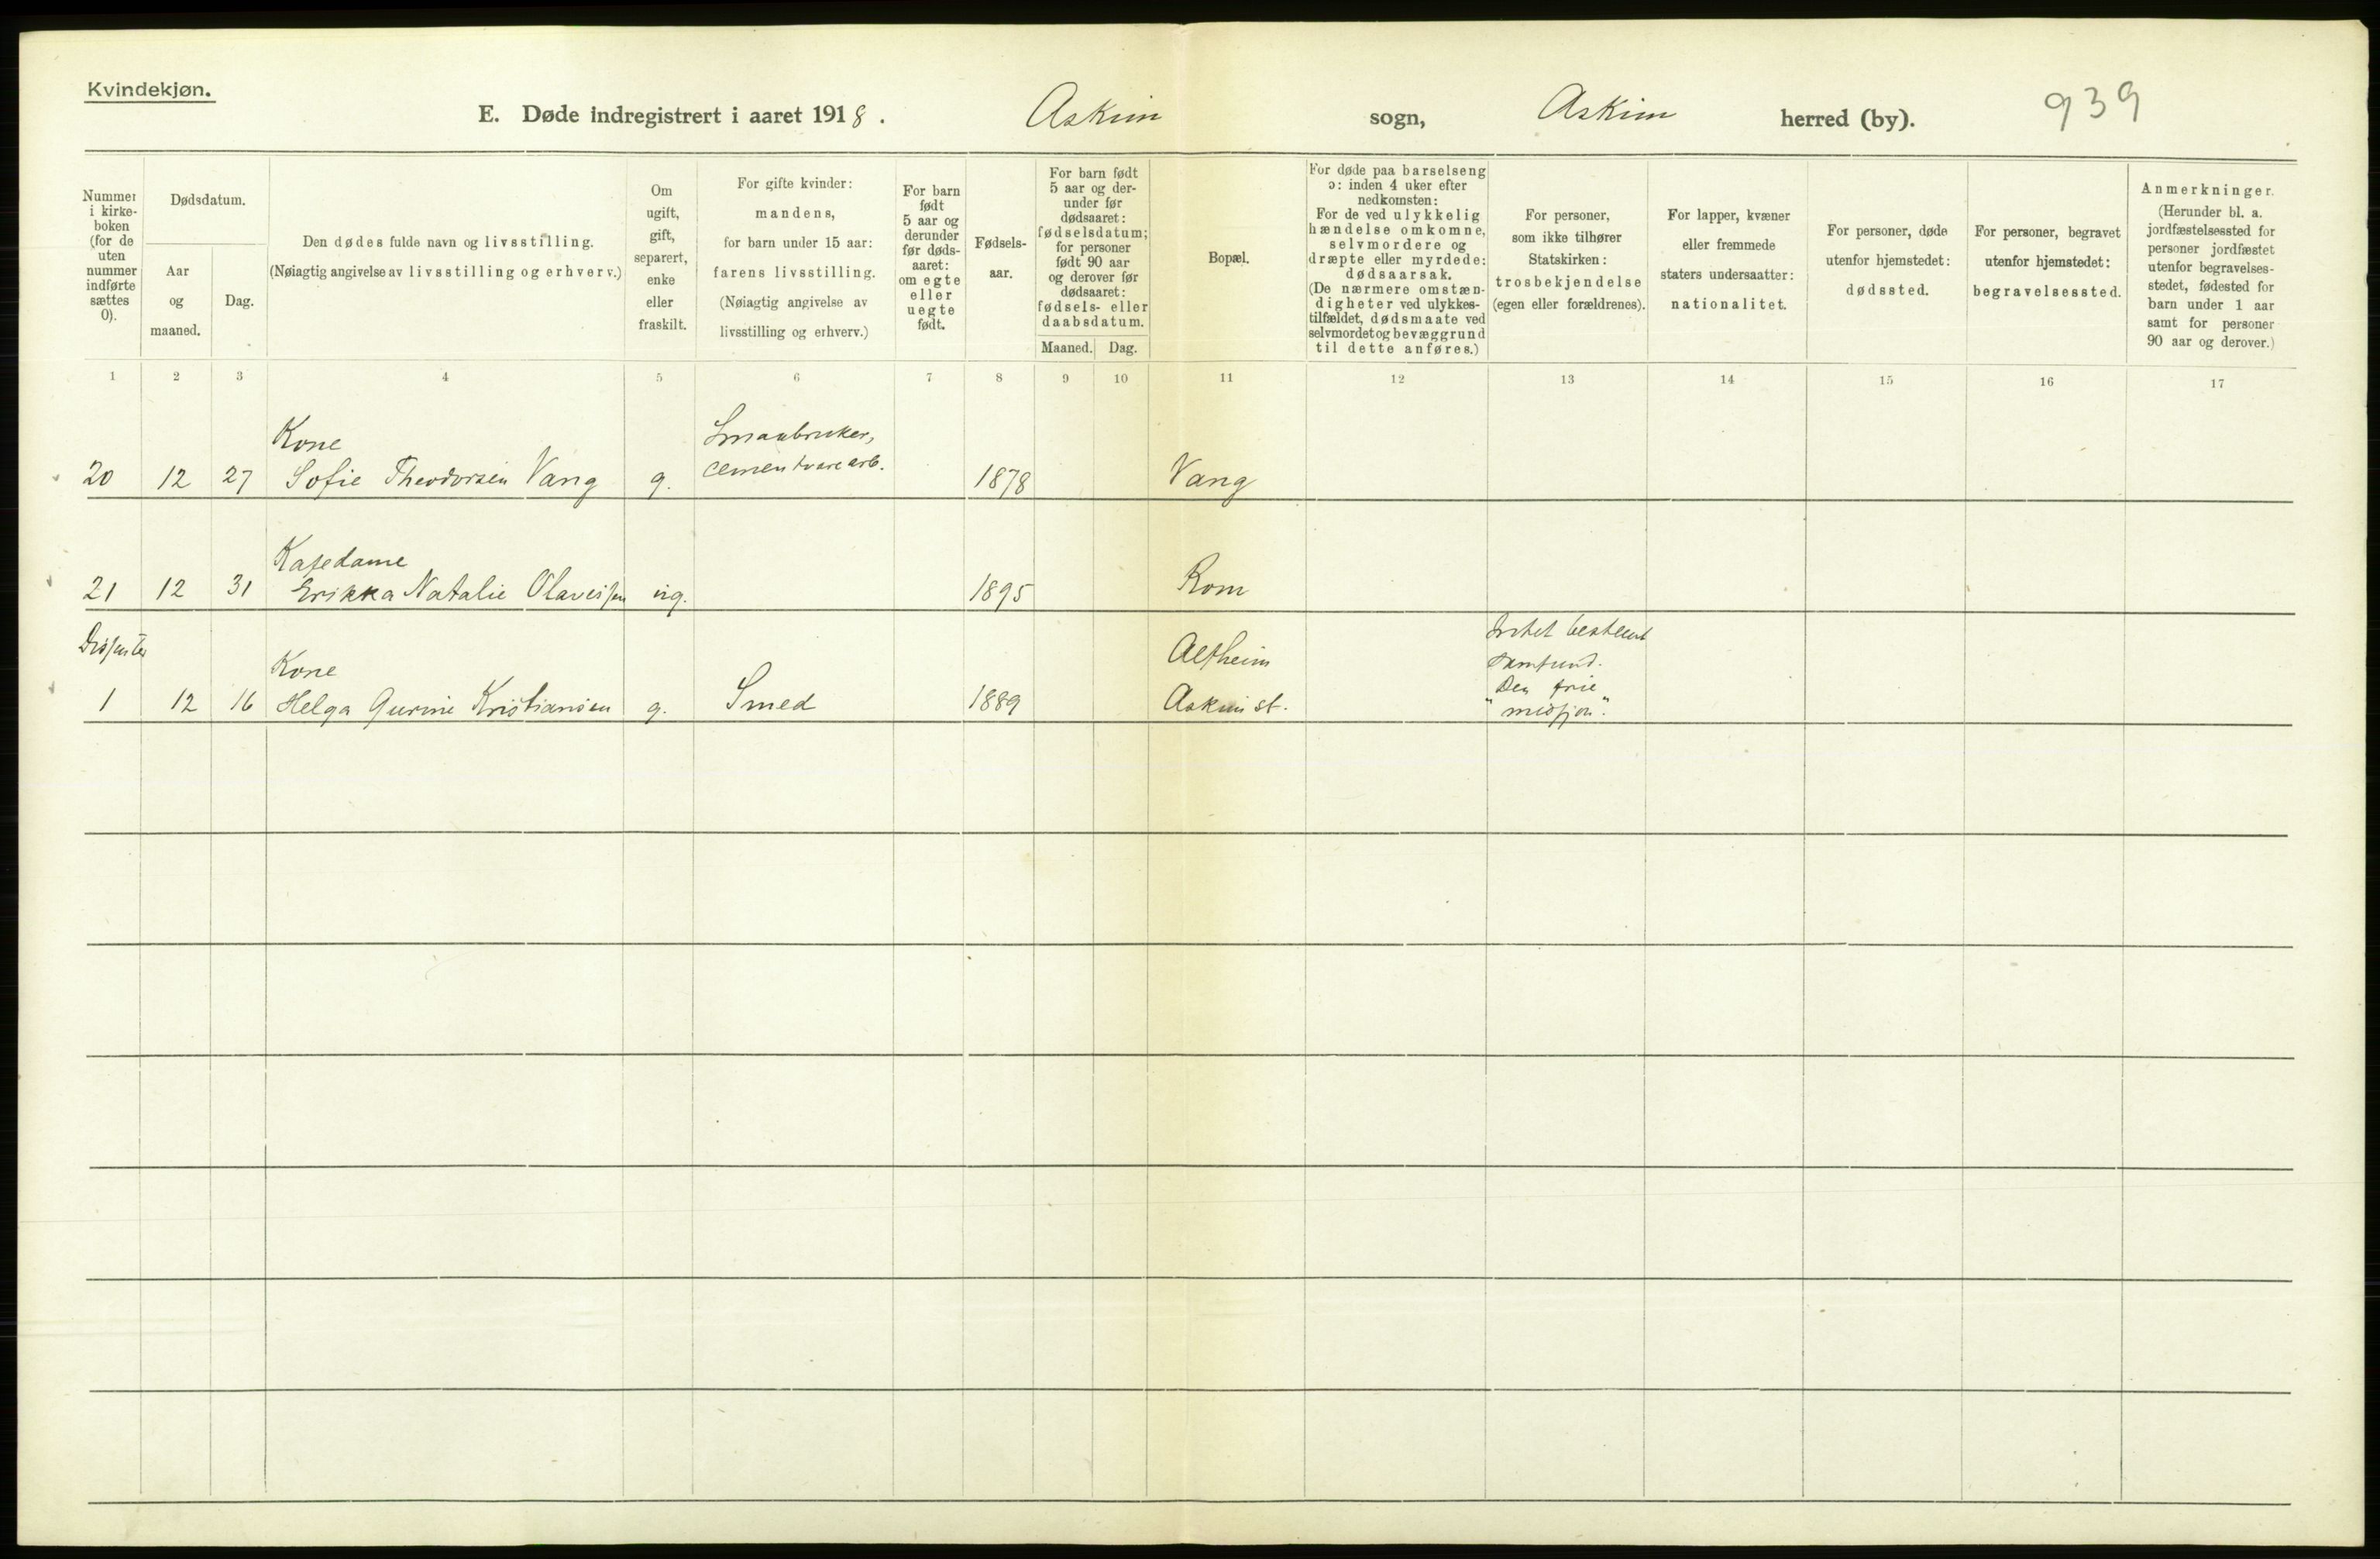 Kvindekjøn.
E. Døde indregistrert i aaret 1918. Askim sogn, Askim herred (by). 939
Nummer i kirke- boken (for de uten nummer indførte sættes 0).
Dødsdatum.
Aar og maaned.
Dag.
Den dødes fulde navn og livsstilling.
(Nøiagtig angivelse av livsstilling og erhverv.)
Om ugift, gift, separert, enke eller fraskilt.
For gifte kvinder:
mandens,
for barn under 15 aar:
farens livsstilling.
(Nøiagtig angivelse av
livsstilling og erhverv.)
For barn født 5 aar og derunder før døds- aaret: om egte eller uegte født.
Fødsels- aar.
For barn født
5 aar og der-
under før
dødsaaret:
fødselsdatum;
for personer
født 90 aar
og derover før
dødsaaret:
fødsels- eller
daabsdatum.
Maaned. Dag.
Bopæl.
For døde paa barselseng
ɔ: inden 4 uker efter
nedkomsten:
For de ved ulykkelig
hændelse omkomne,
selvmordere og
dræpte eller myrdede:
dødsaarsak.
(De nærmere omstæn-
digheter ved ulykkes-
tilfældet, dødsmaate ved
selvmordet og bevæggrund
til dette anføres.)
For personer,
som ikke tilhører
Statskirken:
trosbekjendelse
(egen eller forældrenes).
For lapper, kvæner
eller fremmede
staters undersaatter:
nationalitet.
For personer, døde
utenfor hjemstedet:
dødssted.
For personer, begravet
utenfor hjemstedet:
begravelsessted.
Anmerkninger.
(Herunder bl. a.
jordfæstelsessted for
personer jordfæstet
utenfor begravelses-
stedet, fødested for
barn under 1 aar
samt for personer
90 aar og derover.)
1 2 3 4 5 6 7 8 9 10 11 12 13 14 15 16 17
Kone Smaabruker,
20 12 27 Sofie Theodorsen Vang g. cementvarearb. 1878 Vang
Kafedame
21 12 31 Erikka Natalie Olavessen ug. 1895 Rom
Dissenter Kone Alfheim Intet bestemt samfund.
1 12 16 Helga Gurine Kristiansen g. Smed 1889 Askim st. "Den frie misjon".